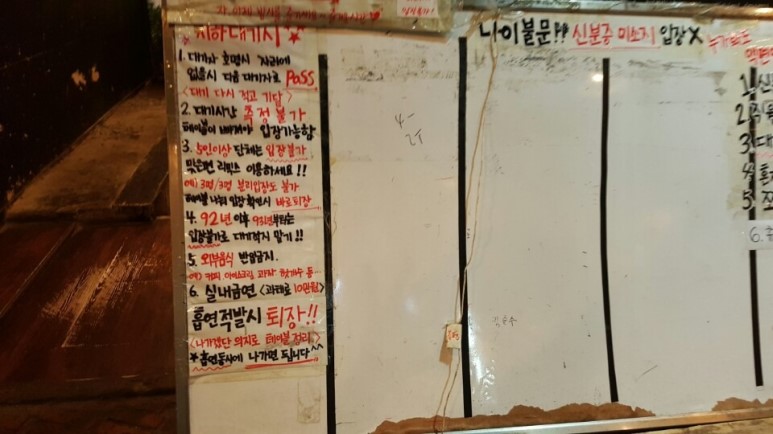 지하대기시 ★
1. 대기자 호명시 자리에
없을시 다음 대기자로 PASS
<대기 다시 적고 기담>
2. 대기시간 측정불가
테이블이 빠져야 입장가능함
3. 5인이상 단체는 입장불가
맞은편 리믹스 이용하세요!!
예) 3명/3명 분리입장도 불가
테이블 나눠 입장 확인시 바로퇴장
4. 92년 이후 93년부터는
입장불가로 대기하지 말기!!
5. 외부음식 반입금지.
예) 커피 아이스크림 과자 핫개수 등
6. 실내금연 <과태료 10만원>
흡연적발시 퇴장!!
<나가겠단 의지로 테이블 정리>
★흡연동시에 나가면 됩니다^^
나이불문!! 신분증 미소지 입장X
4-
2T
1. 신
2.
3. 대
4. 혼
5.
6.